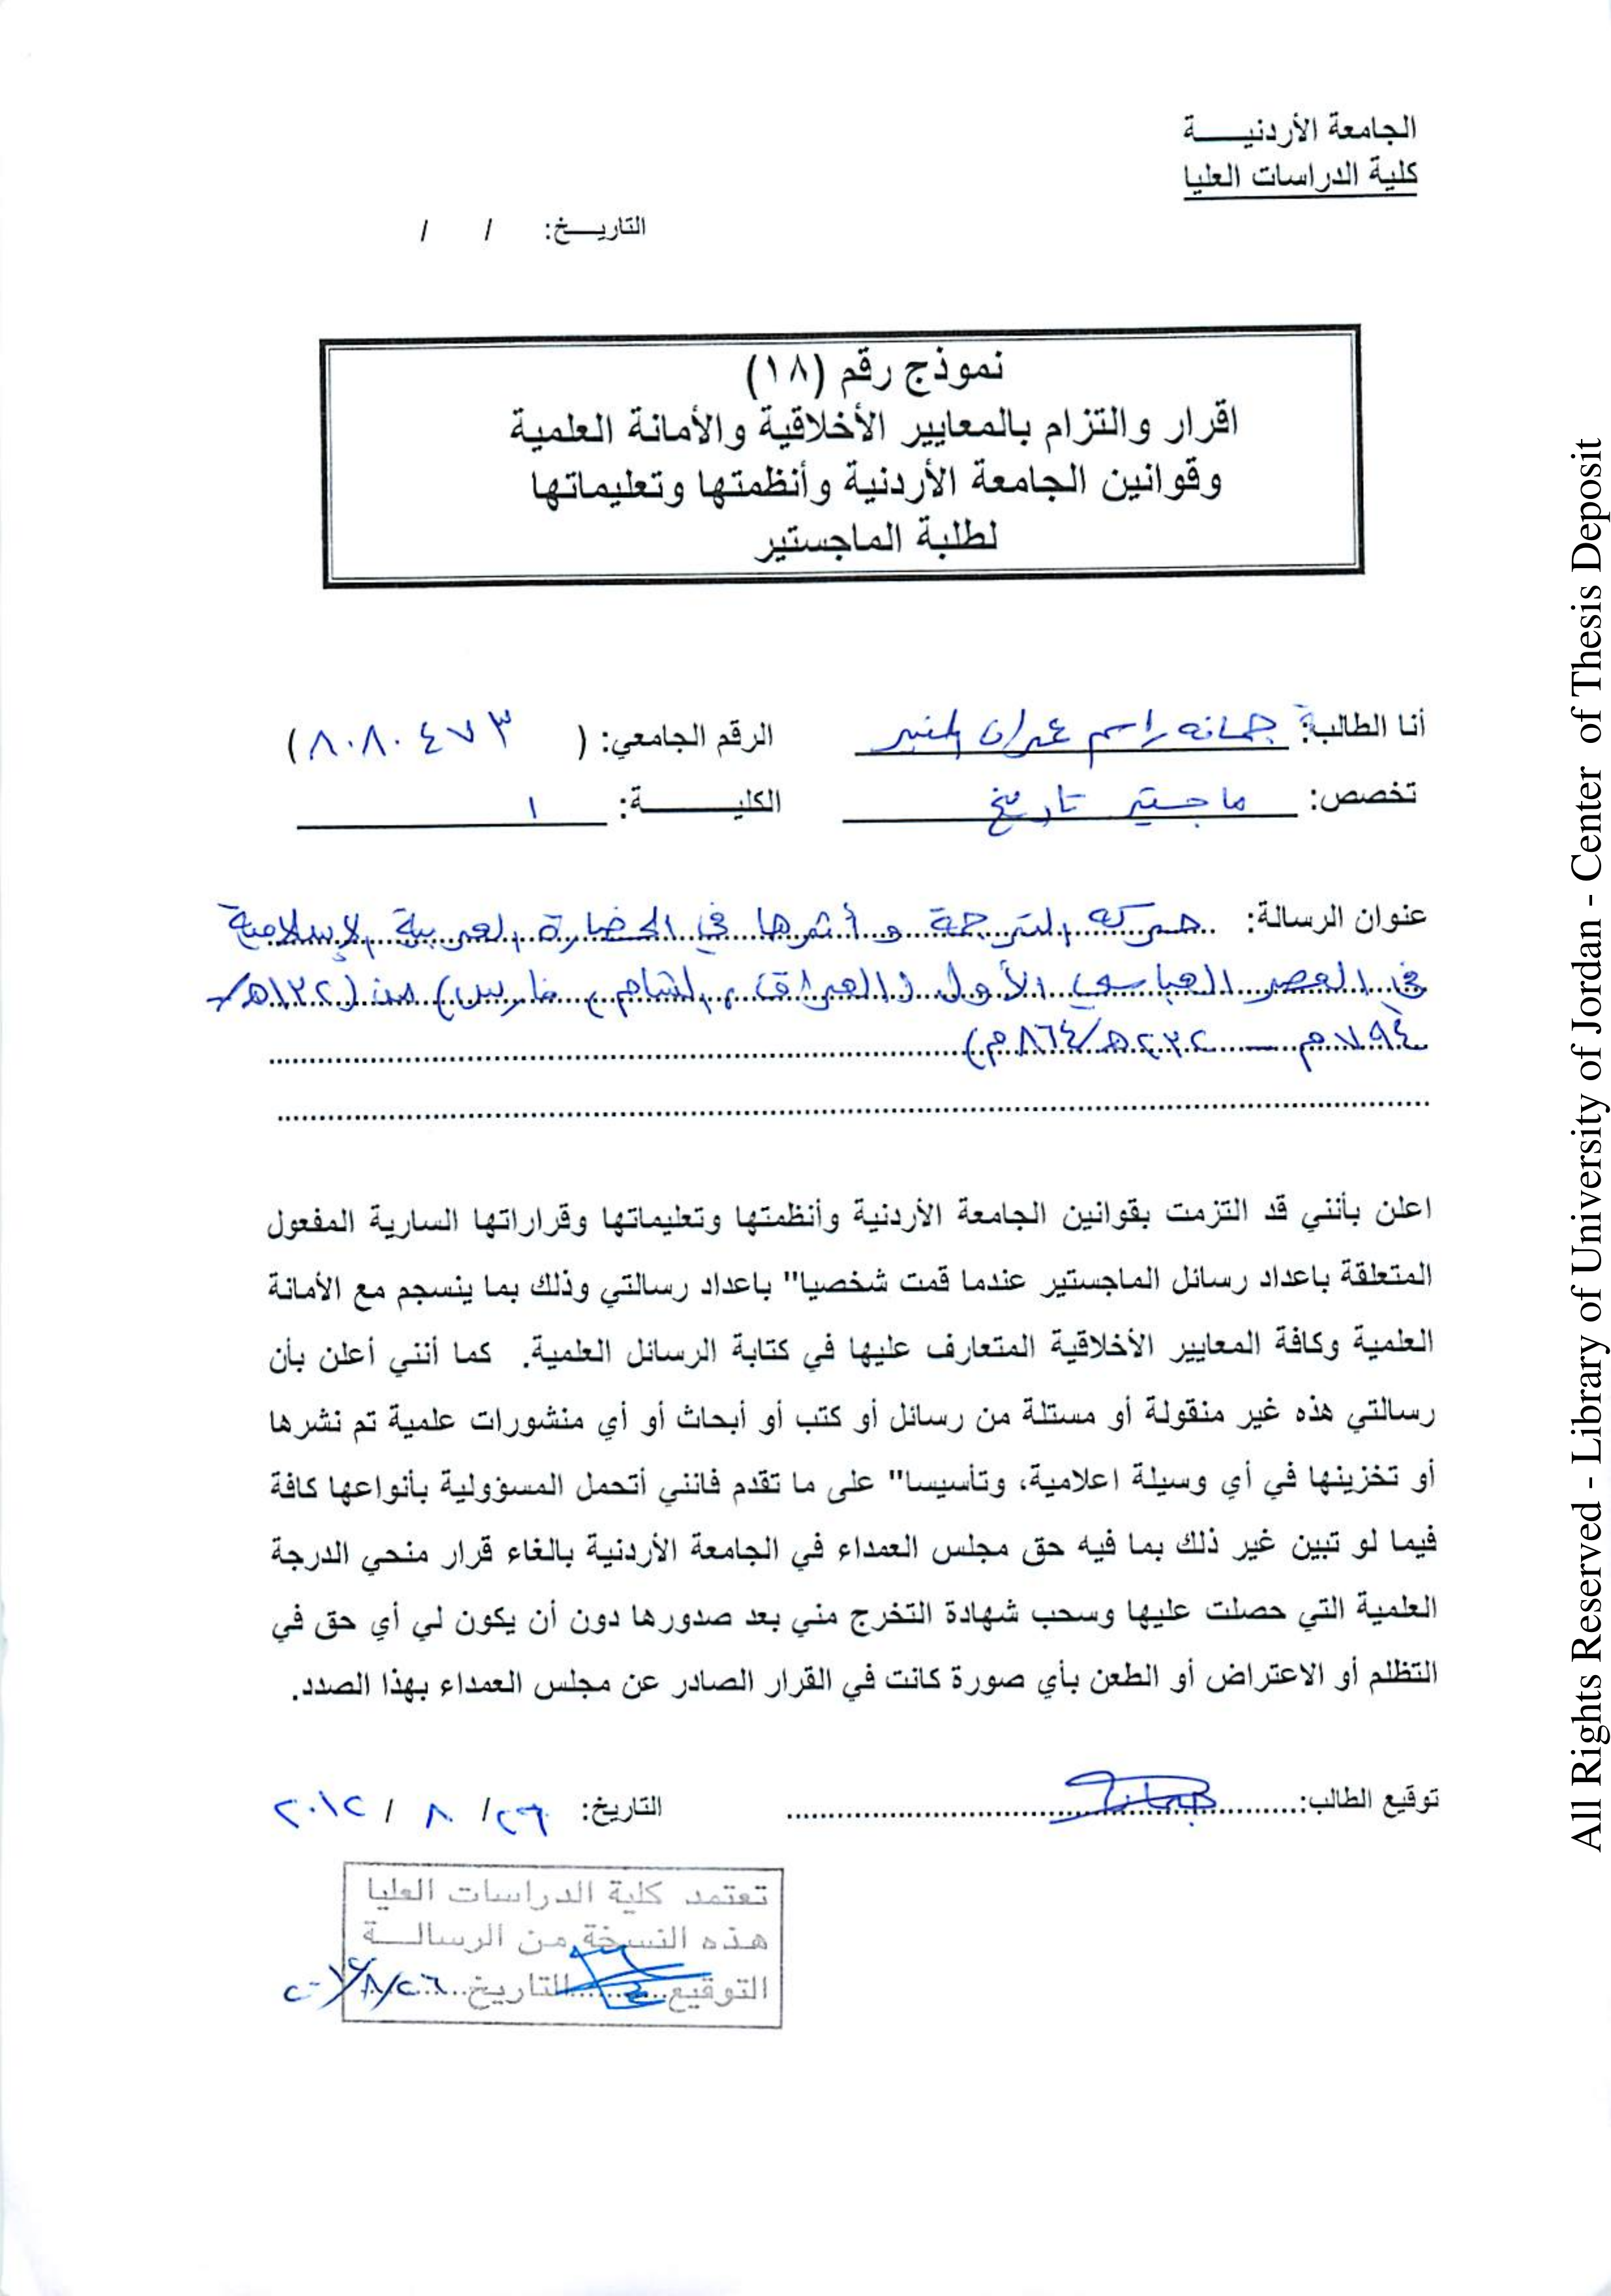 الجامعة الأردنيـــــة
كلية الدراسات العليا
التاريـــخ: / /
نموذج رقم (١٨)
اقرار والتزام بالمعايير الأخلاقية والأمانة العلمية
وقوانين الجامعة الأردنية وأنظمتها وتعليماتها
لطلبة الماجستير
أنا الطالب: جمانه راسم عمران الرقم الجامعي: ( ٨٠٨٠٤٧٣ )
تخصص: ماجستير تاريخ الكليـــــــة: ١
عنوان الرسالة: حركه الترجمة وأثرها في الحضارة العربية الإسلامية
في العصر العباسي الأول (العراق، الشام، فارس) من (١٣٢هـ/
٧٩٤م – ٢٣٢هـ/٨٦٤م)
اعلن بأنني قد التزمت بقوانين الجامعة الأردنية وأنظمتها وتعليماتها وقراراتها السارية المفعول
المتعلقة باعداد رسائل الماجستير عندما قمت شخصيا" باعداد رسالتي وذلك بما ينسجم مع الأمانة
العلمية وكافة المعايير الأخلاقية المتعارف عليها في كتابة الرسائل العلمية. كما أنني أعلن بأن
رسالتي هذه غير منقولة أو مستلة من رسائل أو كتب أو أبحاث أو أي منشورات علمية تم نشرها
أو تخزينها في أي وسيلة اعلامية، وتأسيسا" على ما تقدم فانني أتحمل المسؤولية بأنواعها كافة
فيما لو تبين غير ذلك بما فيه حق مجلس العمداء في الجامعة الأردنية بالغاء قرار منحي الدرجة
العلمية التي حصلت عليها وسحب شهادة التخرج مني بعد صدورها دون أن يكون لي أي حق في
التظلم أو الاعتراض أو الطعن بأي صورة كانت في القرار الصادر عن مجلس العمداء بهذا الصدد.
توقيع الطالب: جمانة التاريخ: ٢٦/ ٨ / ٢٠١٢
تعتمد كلية الدراسات العليا
هذه النسخة من الرسالـــة
التوقيع التاريخ ٢٦/٨/
All Rights Reserved - Library of University of Jordan - Center of Thesis Deposit